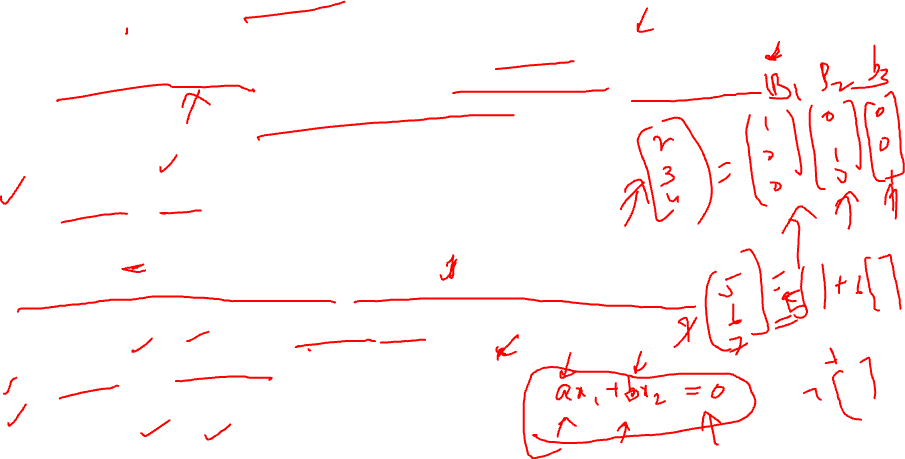 B₁ B₂ b₃
(2 3 4) = (1 0 0) (0 1 0) (0 0 1)
(5 6 7) = 5( ) + 6[ ]
7[ ]
ax₁ + bx₂ = 0